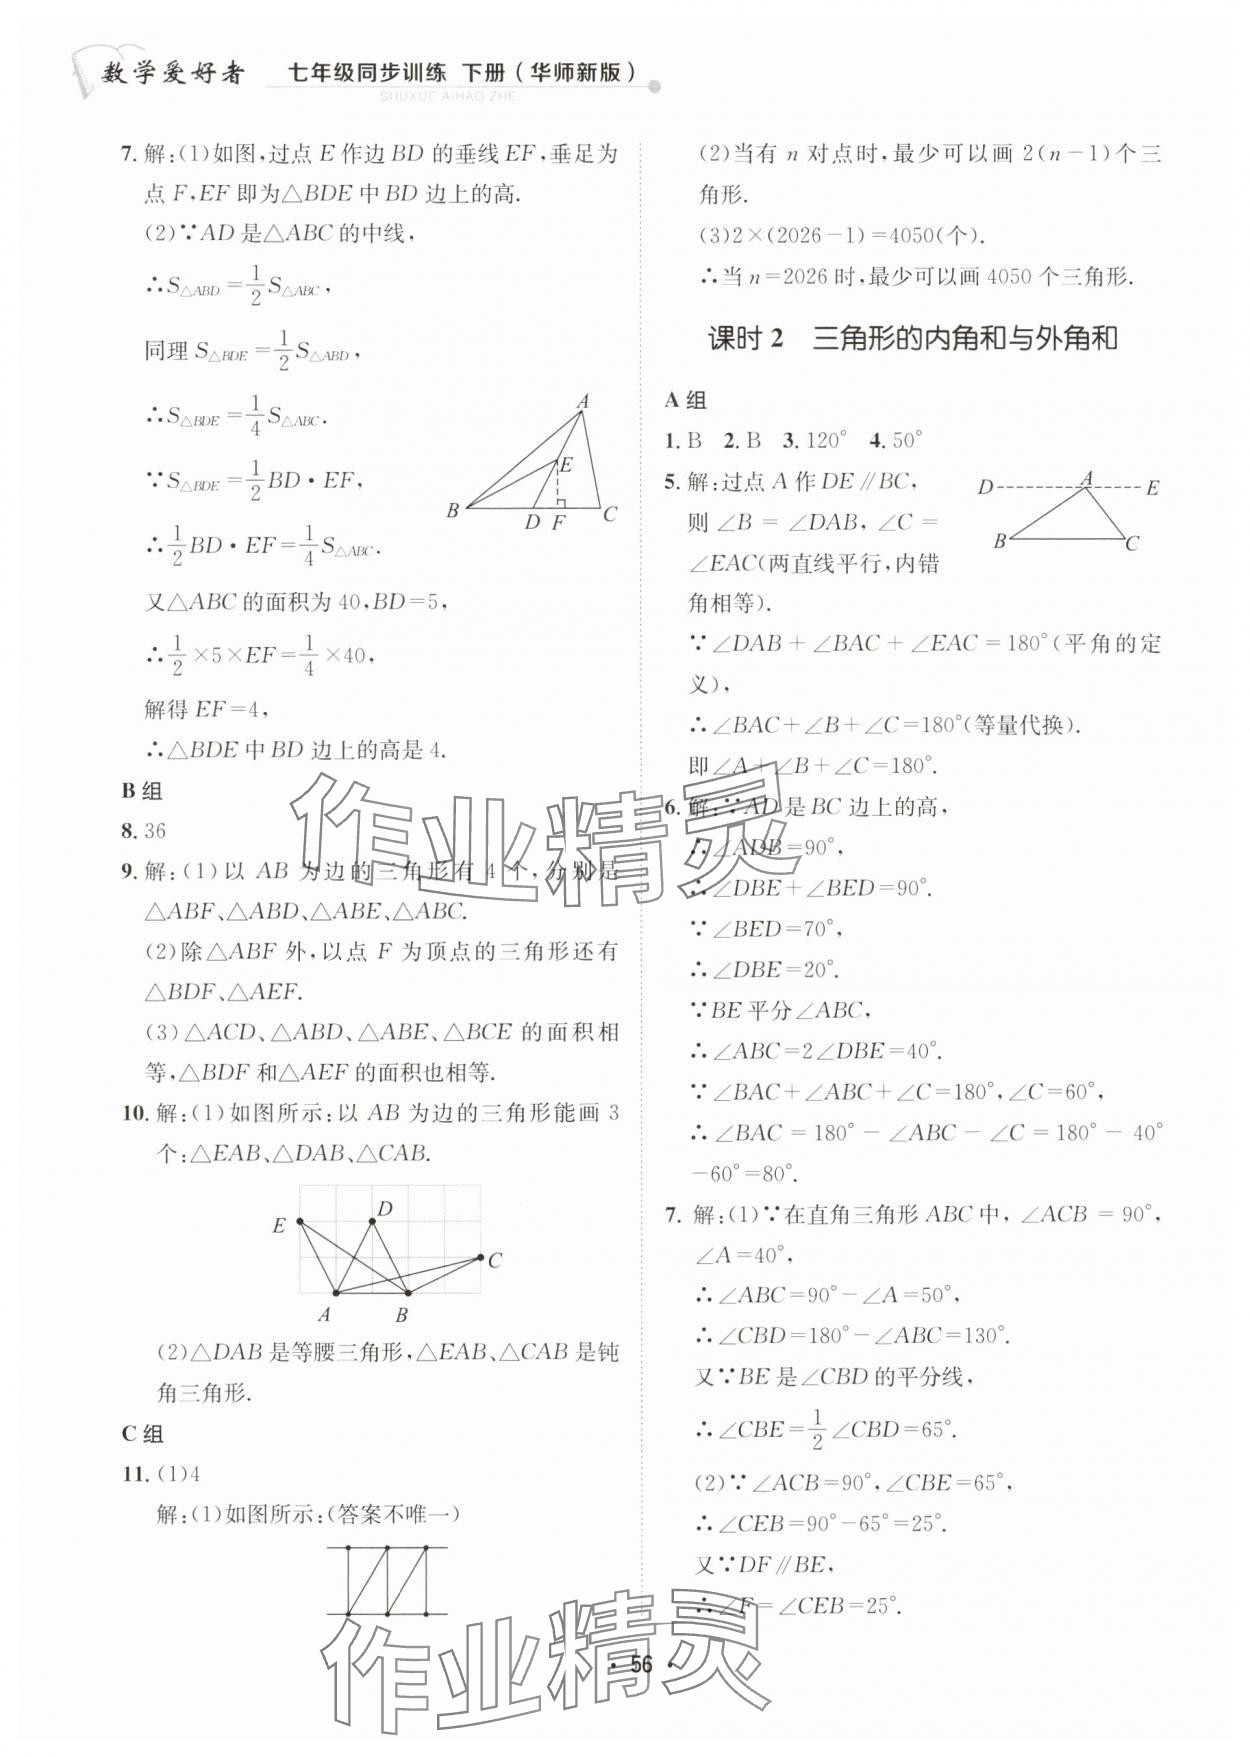 数学爱好者 七年级同步训练 下册(华师新版)
SHUXUE AIHAO ZHE
7. 解:(1)如图,过点 E 作边 BD 的垂线 EF,垂足为
点 F,EF 即为△BDE 中 BD 边上的高.
(2)∵AD 是△ABC 的中线,
∴S△ABD=1/2 S△ABC,
同理 S△BDE=1/2 S△ABD,
∴S△BDE=1/4 S△ABC.
∵S△BDE=1/2 BD·EF,
∴1/2 BD·EF=1/4 S△ABC.
又△ABC 的面积为 40,BD=5,
∴1/2×5×EF=1/4×40,
解得 EF=4,
∴△BDE 中 BD 边上的高是 4.
A
E
B
D F C
B 组
8. 36
9. 解:(1)以 AB 为边的三角形有 4 个,分别是
△ABF、△ABD、△ABE、△ABC.
(2)除△ABF 外,以点 F 为顶点的三角形还有
△BDF、△AEF.
(3)△ACD、△ABD、△ABE、△BCE 的面积相
等,△BDF 和△AEF 的面积也相等.
10. 解:(1)如图所示:以 AB 为边的三角形能画 3
个:△EAB、△DAB、△CAB.
D
E
C
A B
(2)△DAB 是等腰三角形,△EAB、△CAB 是钝
角三角形.
C 组
11. (1)4
解:(1)如图所示:(答案不唯一)
(2)当有 n 对点时,最少可以画 2(n-1)个三
角形.
(3)2×(2026-1)=4050(个).
∴当 n=2026 时,最少可以画 4050 个三角形.
课时 2 三角形的内角和与外角和
A 组
1. B 2. B 3. 120° 4. 50°
5. 解:过点 A 作 DE∥BC,
则 ∠B = ∠DAB, ∠C =
∠EAC(两直线平行,内错
角相等).
D A E
B C
∵∠DAB+∠BAC+∠EAC=180°(平角的定
义),
∴∠BAC+∠B+∠C=180°(等量代换).
即∠A+∠B+∠C=180°.
6. 解:∵AD 是 BC 边上的高,
∴∠ADB=90°,
∴∠DBE+∠BED=90°.
∵∠BED=70°,
∴∠DBE=20°.
∵BE 平分∠ABC,
∴∠ABC=2∠DBE=40°.
∵∠BAC+∠ABC+∠C=180°,∠C=60°,
∴∠BAC=180°-∠ABC-∠C=180°-40°
-60°=80°.
7. 解:(1)∵在直角三角形 ABC 中,∠ACB=90°,
∠A=40°,
∴∠ABC=90°-∠A=50°,
∴∠CBD=180°-∠ABC=130°.
又∵BE 是∠CBD 的平分线,
∴∠CBE=1/2∠CBD=65°.
(2)∵∠ACB=90°,∠CBE=65°,
∴∠CEB=90°-65°=25°.
又∵DF∥BE,
∴∠F=∠CEB=25°.
作业精灵
作业精灵
· 56 ·